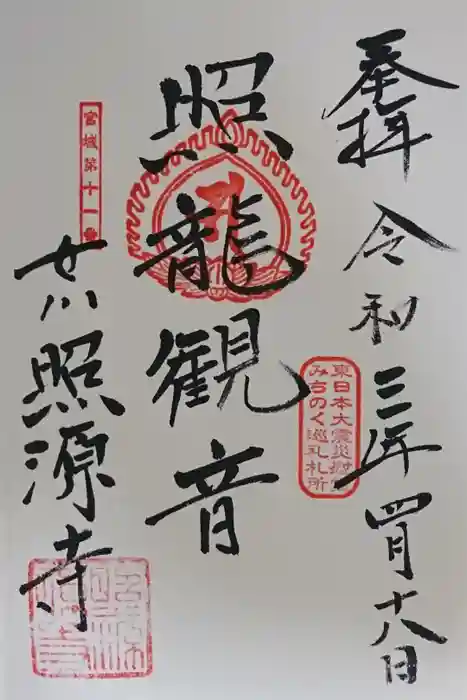 奉拝
令和三年四月十八日
照龍観音
東日本大震災慰霊
みちのく巡礼札所
宮城第十一番
女川照源寺